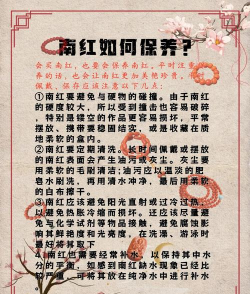 南红如何保养?
会买南红,也要会保养南红,平时注重保
养的话,也会让南红更加美艳珍贵,
佩戴、保存应该注意以下几点:
①南红要避免与硬物的碰撞。由于南红
的硬度较大,所以受到撞击也容易破碎
,特别是镂空的作品更容易损坏,平常
摆放、携带要稳固结实,或是收藏在质
地柔软的盒内。
②南红要定期清洗,长时间佩戴或摆放
的南红表面会产生油污或灰尘。灰尘要
用柔软的毛刷清洁;油污应以温淡的肥
皂水刷洗,再用清水冲净,最后用柔软
的白布擦干。
③南红应该避免阳光直射或过冷过热,
以避免热胀冷缩而损坏。还应该尽量避
免与化学试剂等物品接触,避免腐蚀影
响其鲜艳度和光亮度,在洗澡、游泳时
最好将其取下
④南红也需要经常补水,以保持其中水
分的平衡。如感到南红缺水现象已经比
较严重,可将其放在纯净水中进行补水